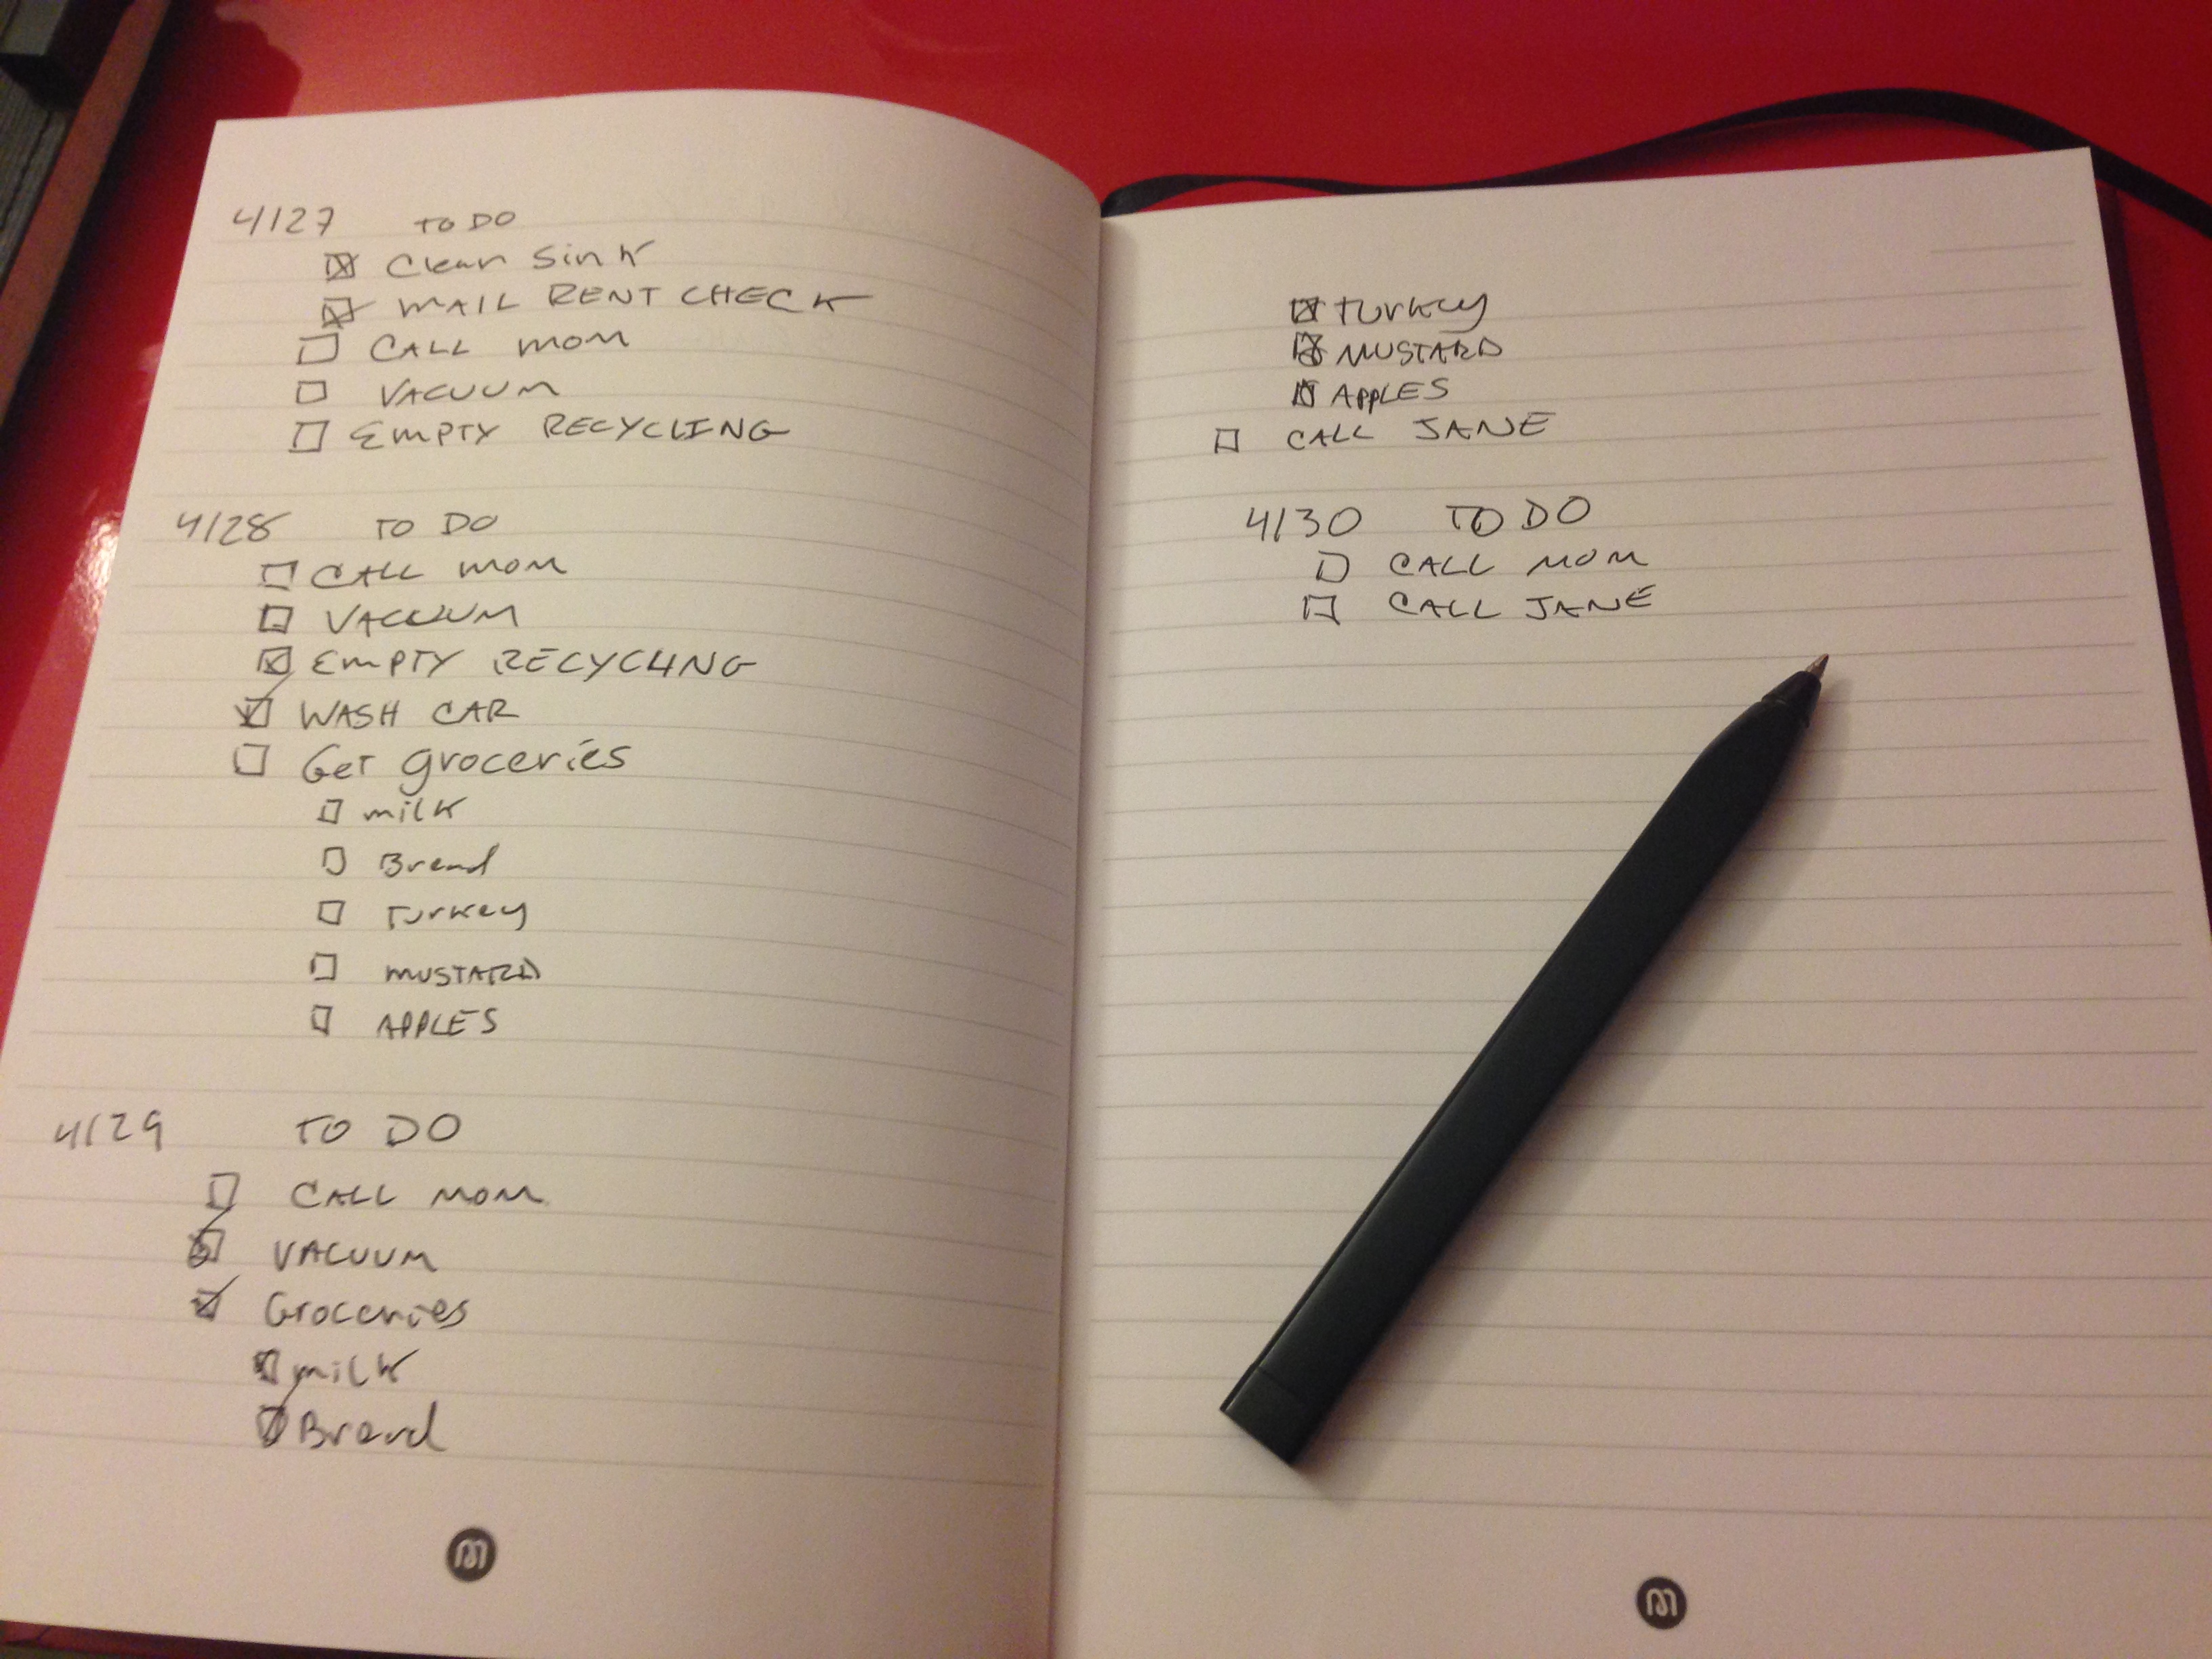 4/27 TO DO
☒ Clean Sink
☒ MAIL RENT CHECK
☐ CALL MOM
☐ VACUUM
☐ EMPTY RECYCLING
4/28 TO DO
☐ CALL MOM
☐ VACUUM
☒ EMPTY RECYCLING
☑ WASH CAR
☐ GET groceries
☐ milk
☐ Bread
☐ Turkey
☐ MUSTARD
☐ APPLES
4/29 TO DO
☐ CALL MOM
☑ VACUUM
☑ Groceries
☑ milk
☑ Bread
☒ Turkey
☒ MUSTARD
☒ APPLES
☐ CALL JANE
4/30 TO DO
☐ CALL MOM
☐ CALL JANE